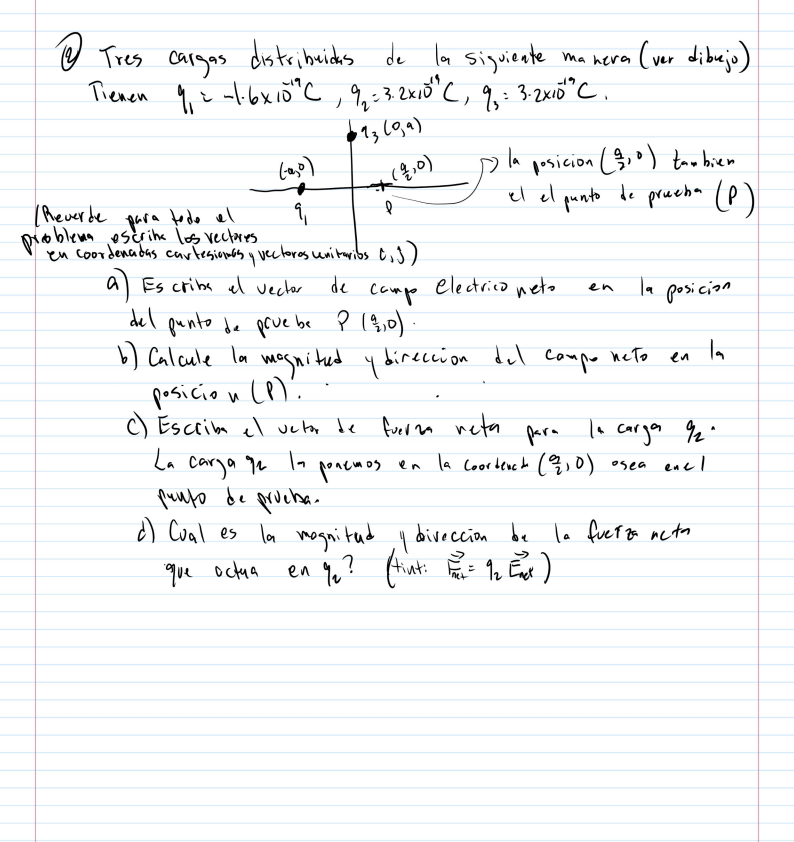 ② Tres cargas distribuidas de la siguiente manera (ver dibujo)
Tienen q₁ = -1.6x10⁻¹⁹C, q₂ = 3.2x10⁻¹⁹C, q₃ = 3.2x10⁻¹⁹C.
q₃ (0,a)
(-a,0)
(a/2,0)
q₁
P
la posicion (a/2, 0) tambien
el el punto de prueba (P)
(Recuerde para todo el
problema escriba los vectores
en coordenadas cartesianas y vectores unitarios i, j)
a) Escriba el vector de campo electrico neto en la posicion
del punto de prueba P (a/2,0).
b) Calcule la magnitud y direccion del campo neto en la
posicion (P).
c) Escriba el vetor de fuerza neta para la carga q₂.
La carga q₂ la ponemos en la coordenada (a/2, 0) osea en el
punto de prueba.
d) Cual es la magnitud y direccion de la fuerza neta
que actua en q₂? (Hint: F⃗net = q₂ E⃗net)